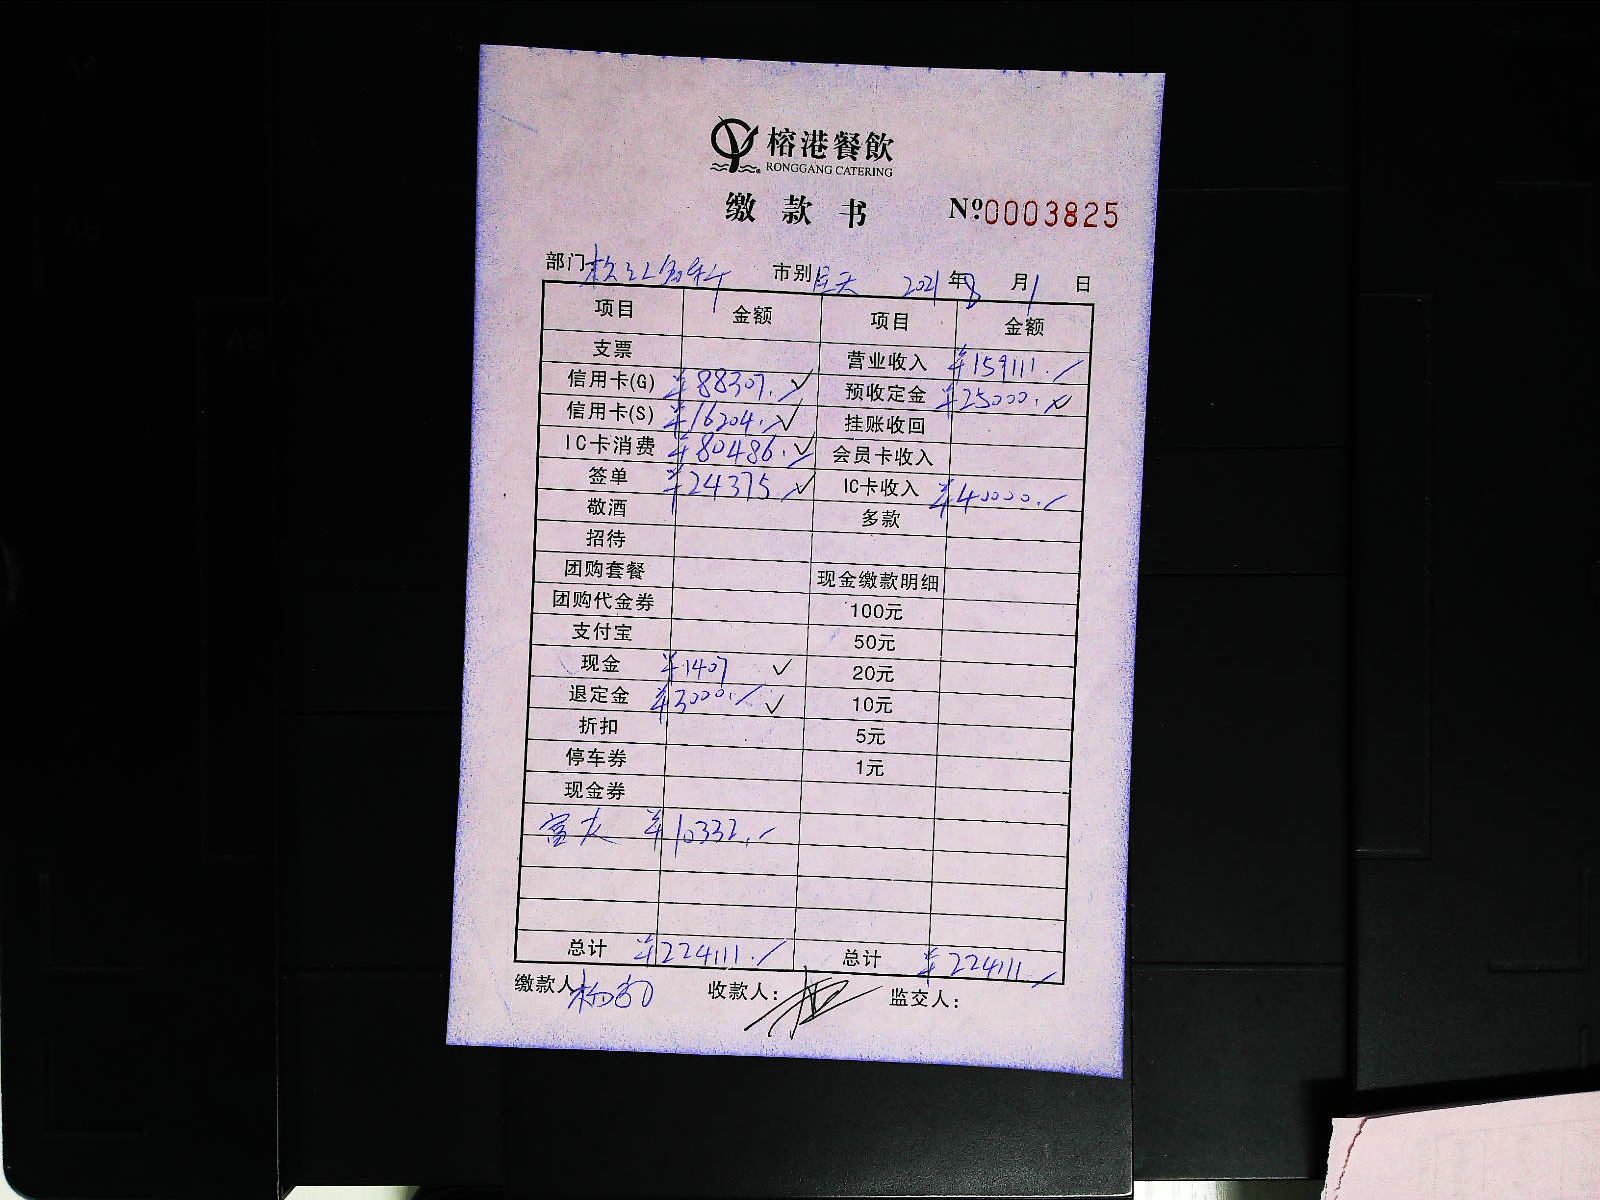 榕港餐飲
RONGGANG CATERING
缴款书 №0003825
部门 市别 全天 2021年8月1日
项目 金额 项目 金额
支票 营业收入 ¥159111.
信用卡(G) ¥88307. ✓ 预收定金 ¥25000. ✓
信用卡(S) ¥16204. ✓ 挂账收回
IC卡消费 ¥80486. ✓ 会员卡收入
签单 ¥24375. ✓ IC卡收入 ¥40000.
敬酒 多款
招待
团购套餐 现金缴款明细
团购代金券 100元
支付宝 50元
现金 ¥1407 ✓ 20元
退定金 ¥3000. ✓ 10元
折扣 5元
停车券 1元
现金券
¥10332.
总计 ¥224111. 总计 ¥224111
缴款人 收款人： 监交人：